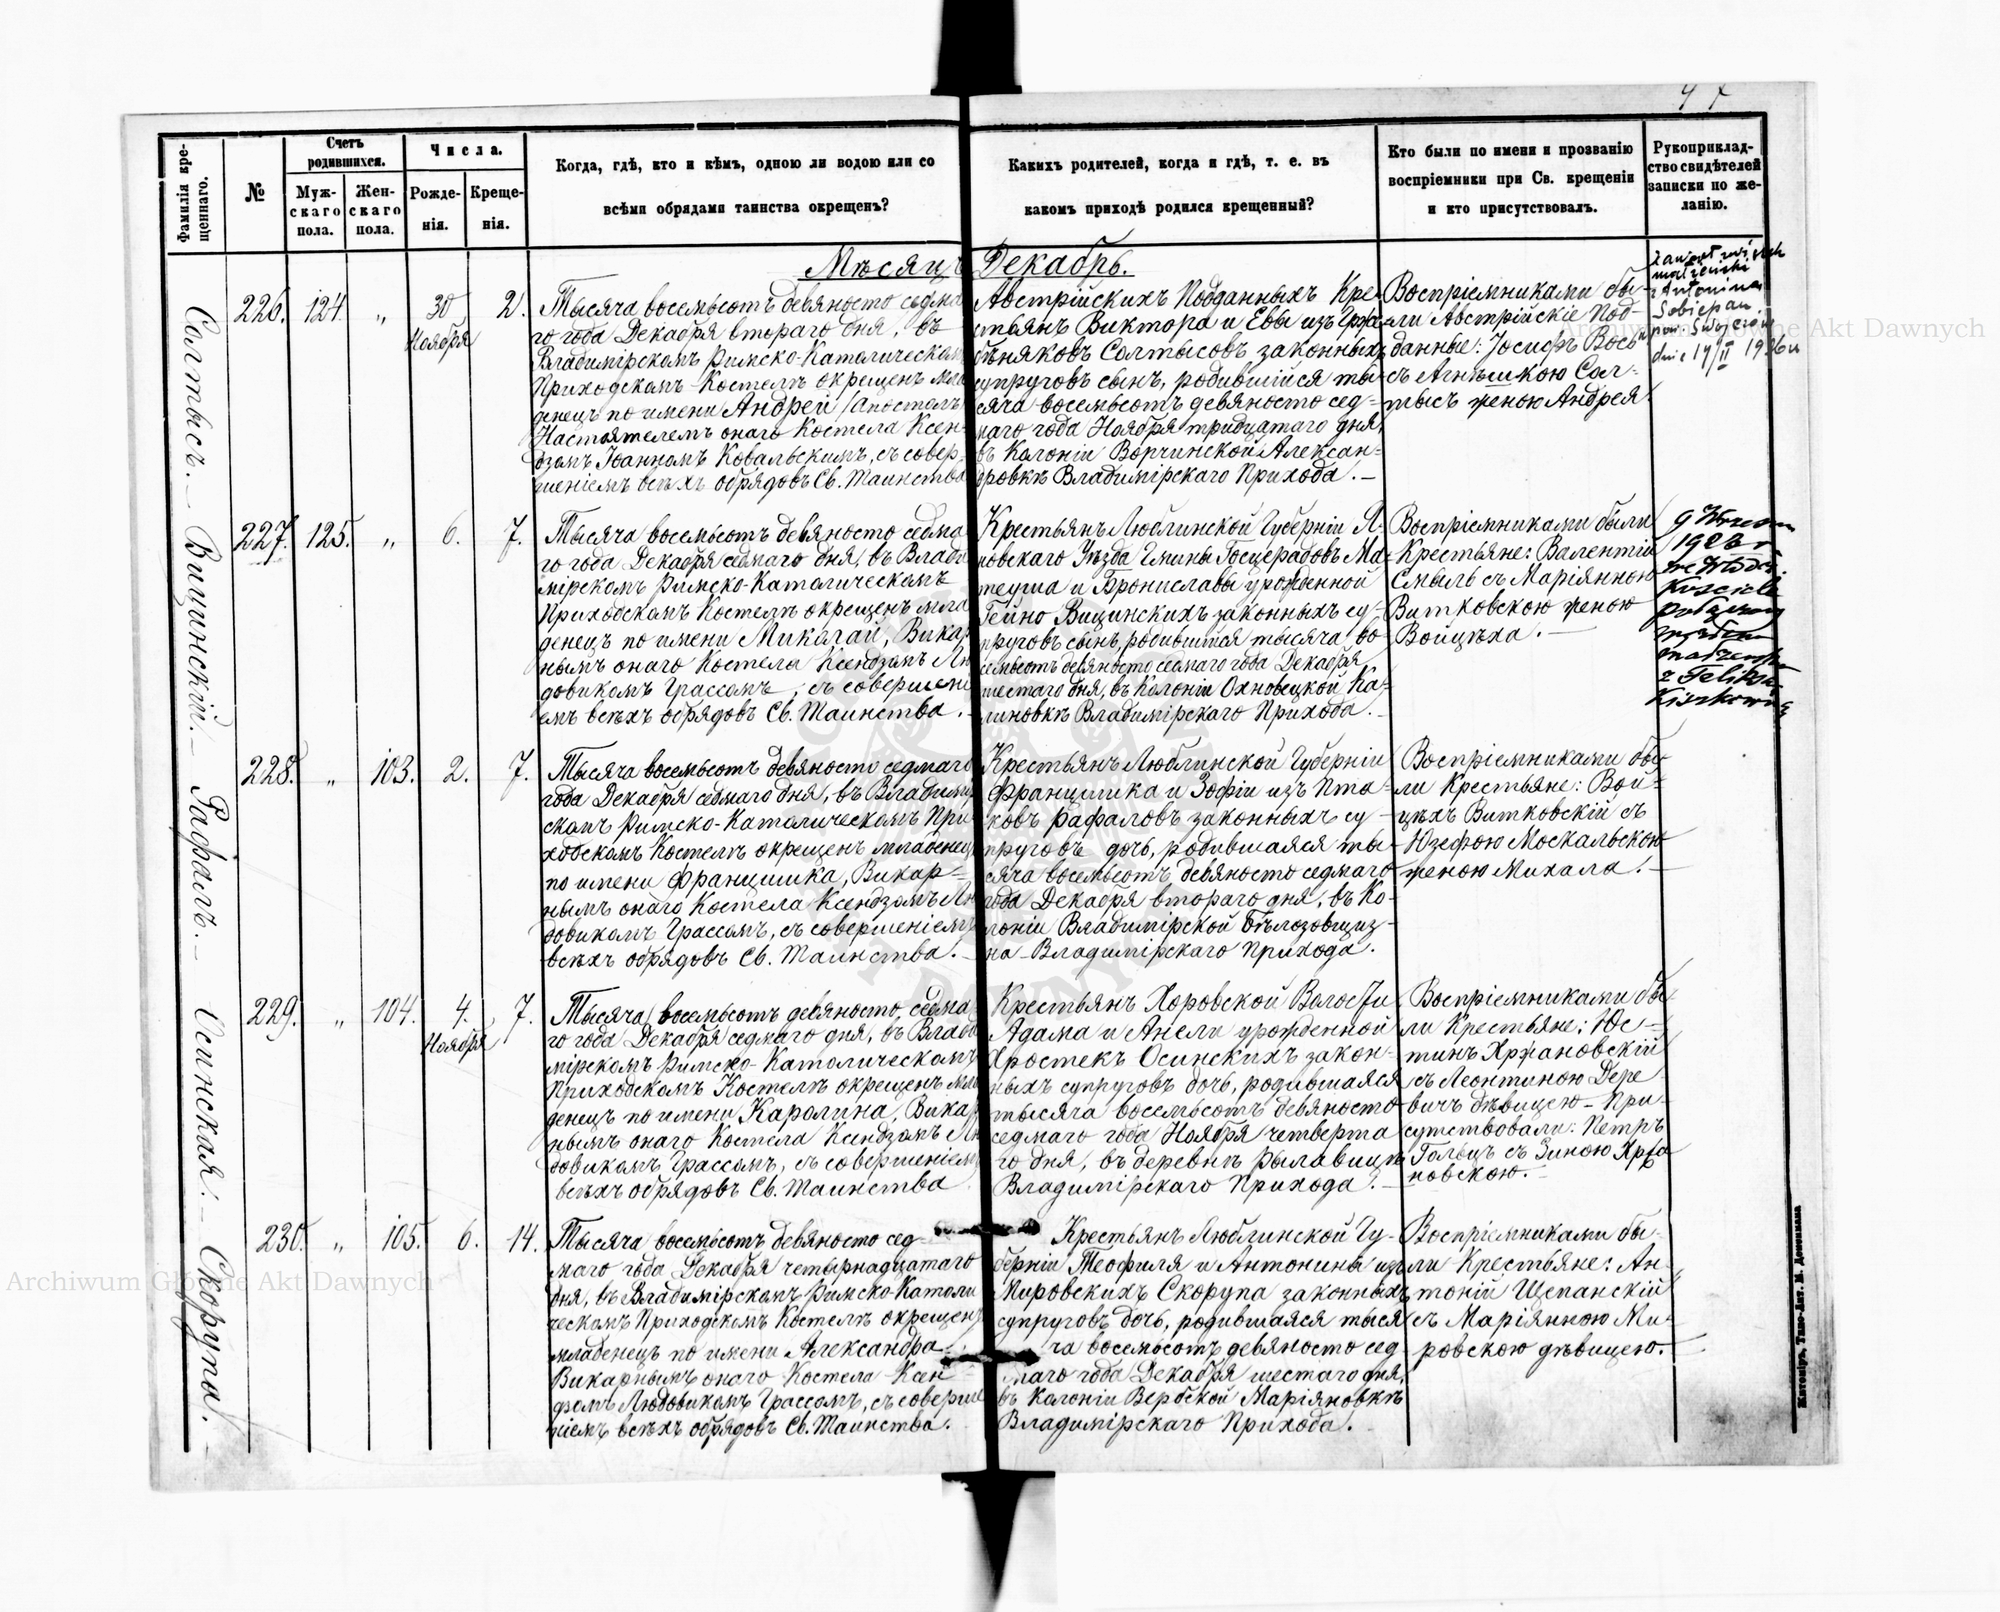 47
Фамилія кре-
щеннаго.
№
Счетъ
родившихся.
Муж-
скаго
пола.
Жен-
скаго
пола.
Числа.
Рожде-
нія.
Креще-
нія.
Когда, гдѣ, кто и кѣмъ, одною ли водою или со
всѣми обрядами таинства окрещенъ?
Какихъ родителей, когда и гдѣ, т. е. въ
какомъ приходѣ родился крещенный?
Кто были по имени и прозванію
воспріемники при Св. крещеніи
и кто присутствовалъ.
Рукоприклад-
ство свидѣтелей
записки по же-
ланію.
Мѣсяцъ Декабрь.
Солтысъ. —
226. 124. „ 30 Ноября 2.
Тысяча восемьсотъ девяносто седма
го года Декабря втораго дня, въ
Владимірскомъ Римско-Католическомъ
Приходскомъ Костелѣ окрещенъ мла
денецъ по имени Андрей (Апостолъ)
Настоятелемъ онаго Костела Ксен-
дзомъ Іоанномъ Ковальскимъ, съ совер-
шеніемъ всѣхъ обрядовъ Св. Таинства
Австрійскихъ Подданныхъ Кре-
стьянъ Виктора и Евы изъ
Солтысовъ законныхъ
супруговъ сынъ, родившійся ты-
сяча восемьсотъ девяносто сед-
маго года Ноября тридцатаго дня,
въ Колоніи Ворчинской Алексан-
дровкѣ Владимірскаго Прихода. —
Воспріемниками бы-
ли Австрійскіе Под-
данные: Іосифъ
съ Агнѣшкою Сол-
тысъ женою Андрея.
Zawarł związek
małżeński
z Antoniną
Sobiepan
dnia 14/II 1926 r
Вицинскій. —
227. 125. „ 6. 7.
Тысяча восемьсотъ девяносто седма
го года Декабря седмаго дня, въ Влади
мірскомъ Римско-Католическомъ
Приходскомъ Костелѣ окрещенъ мла
денецъ по имени Миколай, Викар
нымъ онаго Костела Ксендзомъ Лю
довикомъ Грассомъ, съ совершені
емъ всѣхъ обрядовъ Св. Таинства. —
Крестьянъ Люблинской Губерніи Я-
новскаго Уѣзда Гмины Госцерадовъ Ма-
теуша и Брониславы урожденной
Гейно Вицинскихъ законныхъ су-
пруговъ сынъ, родившійся тысяча во-
семьсотъ девяносто седмаго года Декабря
шестаго дня, въ Колоніи Охновецкой Ка-
линовкѣ Владимірскаго Прихода. —
Воспріемниками были
Крестьяне: Валентій
Смыль съ Маріянною
Витковскою женою
Войцѣха. —
1926 r.
we Włodz.
Kościele
małżeński
z Feliksą
Рафалъ. —
228. „ 103. 2. 7.
Тысяча восемьсотъ девяносто седмаго
года Декабря седмаго дня, въ Владимір
скомъ Римско-Католическомъ При-
ходскомъ Костелѣ окрещенъ младенецъ
по имени Францишка, Викар-
нымъ онаго Костела Ксендзомъ Лю
довикомъ Грассомъ, съ совершеніемъ
всѣхъ обрядовъ Св. Таинства. —
Крестьянъ Люблинской Губерніи
Францишка и Зофіи изъ Пта-
ковъ Рафаловъ законныхъ су-
пруговъ дочь, родившаяся ты-
сяча восемьсотъ девяносто седмаго
года Декабря втораго дня, въ Ко-
лоніи Владимірской Бѣлозовщиз-
на Владимірскаго Прихода.
Воспріемниками бы-
ли Крестьяне: Вой-
цѣхъ Витковскій съ
Юзефою Москальскою
женою Михала. —
Осинская. —
229. „ 104. 4. Ноября 7.
Тысяча восемьсотъ девяносто седма
го года Декабря седмаго дня, въ Влади
мірскомъ Римско-Католическомъ
Приходскомъ Костелѣ окрещенъ мла
денецъ по имени Каролина, Викар
нымъ онаго Костела Ксендзомъ Лю
довикомъ Грассомъ, съ совершеніемъ
всѣхъ обрядовъ Св. Таинства.
Крестьянъ Хоровской Волости
Адама и Анели урожденной
Хростекъ Осинскихъ закон-
ныхъ супруговъ дочь, родившаяся
тысяча восемьсотъ девяносто
седмаго года Ноября четверта
го дня, въ деревнѣ Рылавицѣ
Владимірскаго Прихода. —
Воспріемниками бы-
ли Крестьяне: Юс-
тинъ Хржановскій
съ Леонтиною Дере-
вичъ дѣвицею — При-
сутствовали: Петръ
Гольцъ съ Зиною Хржа
новскою. —
Скорупа. —
230. „ 105. 6. 14.
Тысяча восемьсотъ девяносто сед-
маго года Декабря четырнадцатаго
дня, въ Владимірскомъ Римско-Католи
ческомъ Приходскомъ Костелѣ окрещенъ
младенецъ по имени Александра
Викарнымъ онаго Костела Ксен
дзомъ Людовикомъ Грассомъ, съ соверше
ніемъ всѣхъ обрядовъ Св. Таинства.
Крестьянъ Люблинской Гу-
берніи Теофиля и Антонины изъ
Мировскихъ Скорупа законныхъ
супруговъ дочь, родившаяся тыся
ча восемьсотъ девяносто сед
маго года Декабря шестаго дня,
въ Колоніи Вербской Маріяновкѣ
Владимірскаго Прихода.
Воспріемниками бы-
ли Крестьяне: Ан-
тоній Щепанскій
съ Маріянною Ми-
ровскою дѣвицею. —
Житоміръ, Типо-Лит. М. Дененмана
Archiwum Główne Akt Dawnych
Archiwum Główne Akt Dawnych